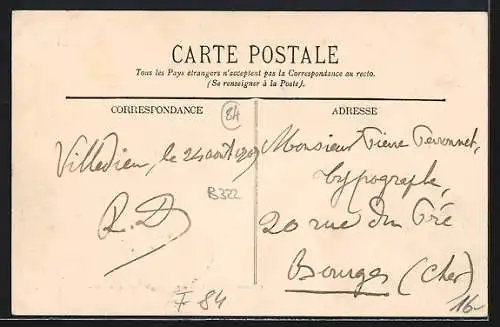 CARTE POSTALE
Tous les Pays étrangers n'acceptent pas la Correspondance au recto.
(Se renseigner à la Poste).
CORRESPONDANCE
84
ADRESSE
Villedieu, le 24 août 1909
R. D
B322
F 84
Monsieur Pierre Peronnet,
typographe,
20 rue du Pré
Bourges (Cher)
16-